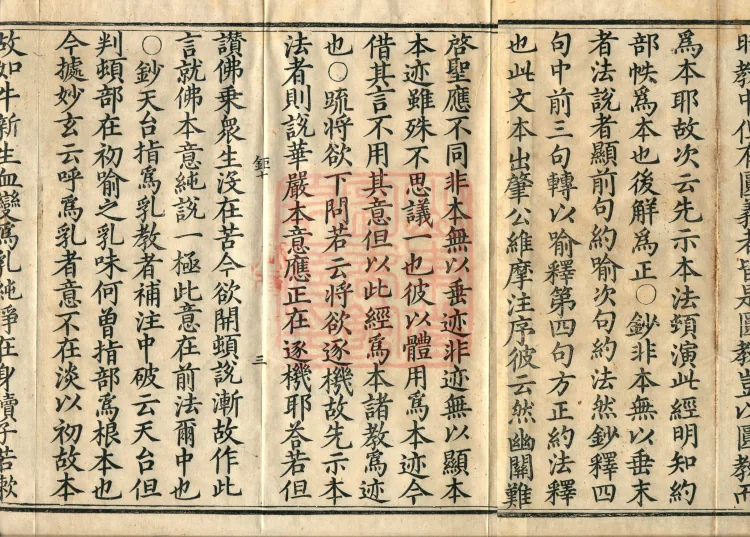 時教中但有圓義者皆是圓教豈以圓教而
爲本耶故次云先示本法頓演此經明知約
部帙爲本也後解爲正○鈔非本無以垂末
者法說者顯前句約喻次句約法然鈔釋四
句中前三句轉以喻釋第四句方正約法釋
也此文本出肇公維摩注序彼云然幽關難
啓聖應不同非本無以垂迹非迹無以顯本
本迹雖殊不思議一也彼以體用爲本迹今
借其言不用其意但以此經爲本諸教爲迹
也○䟽將欲下問若云將欲逐機故先示本
法者則說華嚴本意應正在逐機耶荅若但
鉅十
三
讃佛乗衆生沒在苦今欲開頓說漸故作此
言就佛本意純說一極此意在前法爾中也
○鈔天台指爲乳教者補注中破云天台但
判頓部在初喻之乳味何曾指部爲根本也
今據妙玄云呼爲乳者意不在淡以初故本
故如牛新生血變爲乳純淨在身犢子若㰹